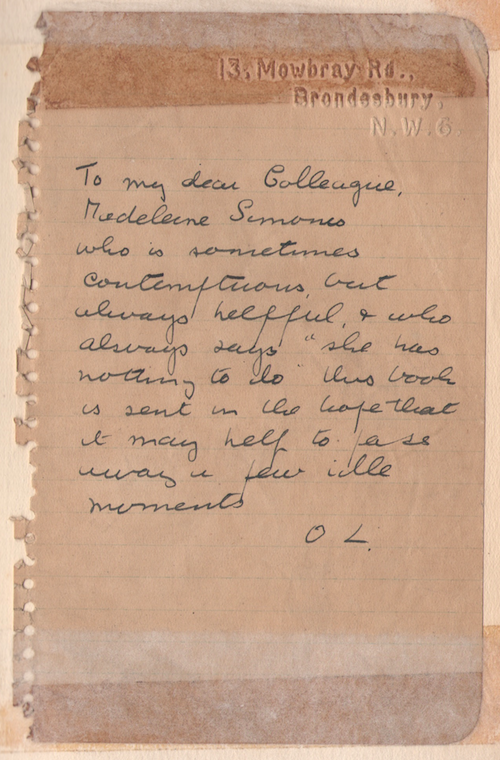 13, Mowbray Rd.,
Brondesbury,
N.W.6.
To my dear Colleague,
Medeleine Simons
who is sometimes
contemptuous, but
always helpful, & who
always says "she has
nothing to do" this book
is sent in the hope that
it may help to pass
away a few idle
moments
O L.